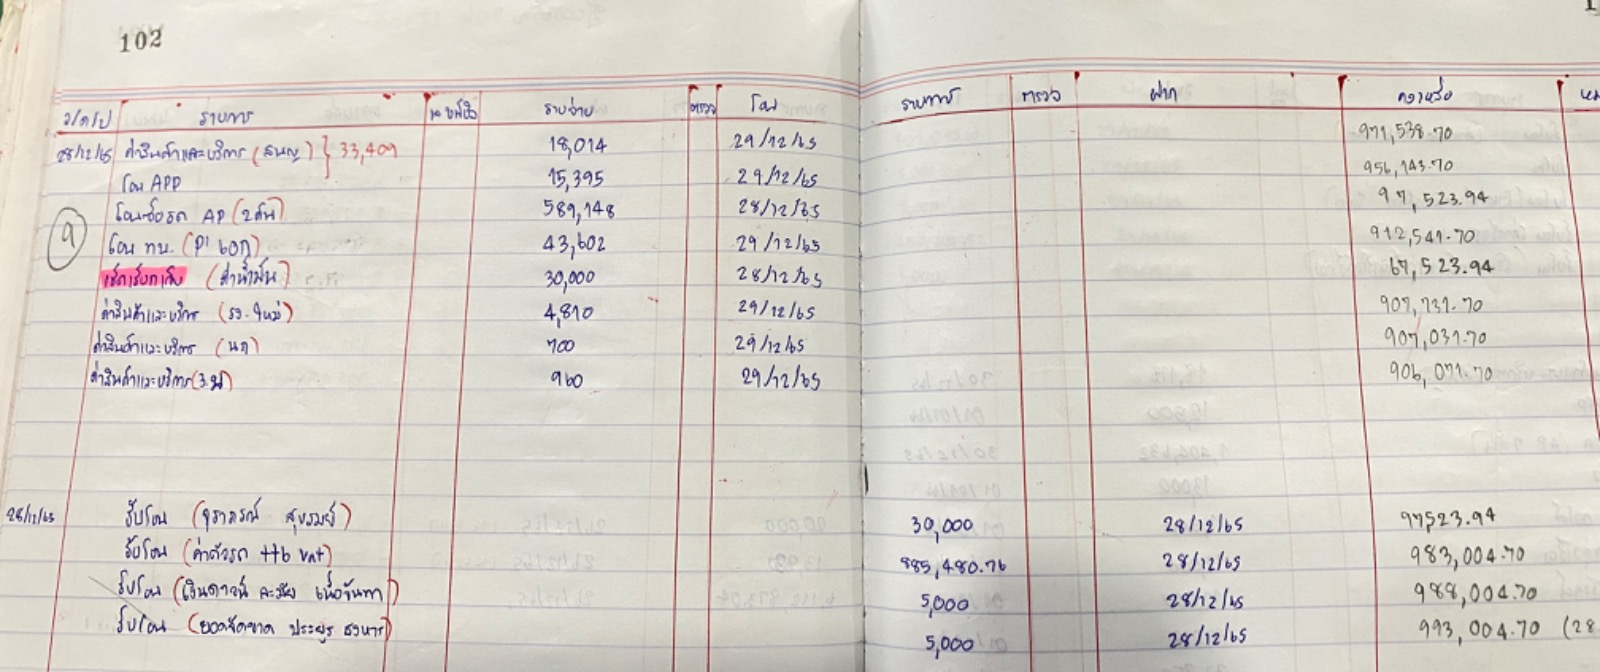 102
ว/ด/ป รายการ รายจ่าย ตรวจ โอน รายการ ตรวจ ฝาก คงเหลือ
971,538.70
28/12/65 ค่าสินค้าและบริการ (สนญ) } 33,409 18,014 29/12/65 956,143.70
โอน APP 15,395 29/12/65
โอนซื้อรถ AP (2คัน) 589,148 28/12/65 97,523.94
9 โอน ทบ. (P' ) 43,602 29/12/65 912,541.70
(ค่าน้ำมัน) 30,000 28/12/65 67,523.94
ค่าสินค้าและบริการ (รง.ใหม่) 4,810 29/12/65 907,731.70
ค่าสินค้าและบริการ (นภ) 700 29/12/65 907,031.70
ค่าสินค้าและบริการ 960 29/12/65 906,071.70
28/12/65 รับโอน (จุราภรณ์ สุขรมย์) 30,000 28/12/65 97523.94
รับโอน (ค่าตัวรถ ttb vat) 885,480.76 28/12/65 983,004.70
รับโอน (เงินดาวน์ ละเอียด เนื้อจันทา) 5,000 28/12/65 988,004.70
รับโอน (ยอดจัดขาด ประยูร ธงหาร) 5,000 28/12/65 993,004.70 (28